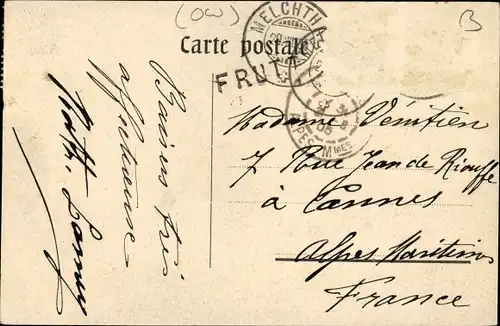 (OW)
B
MELCHTHAL
Carte postale
FRUTT
ALPES-MMES
Baisers très
affectueux
Madame Vénitien
7 Rue Jean de Riouffe
à Cannes
Alpes Maritimes
France